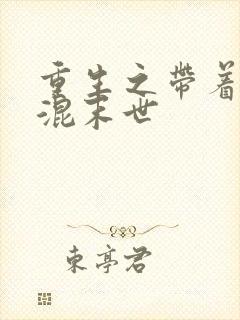 重生之带着
混末世
东亭君